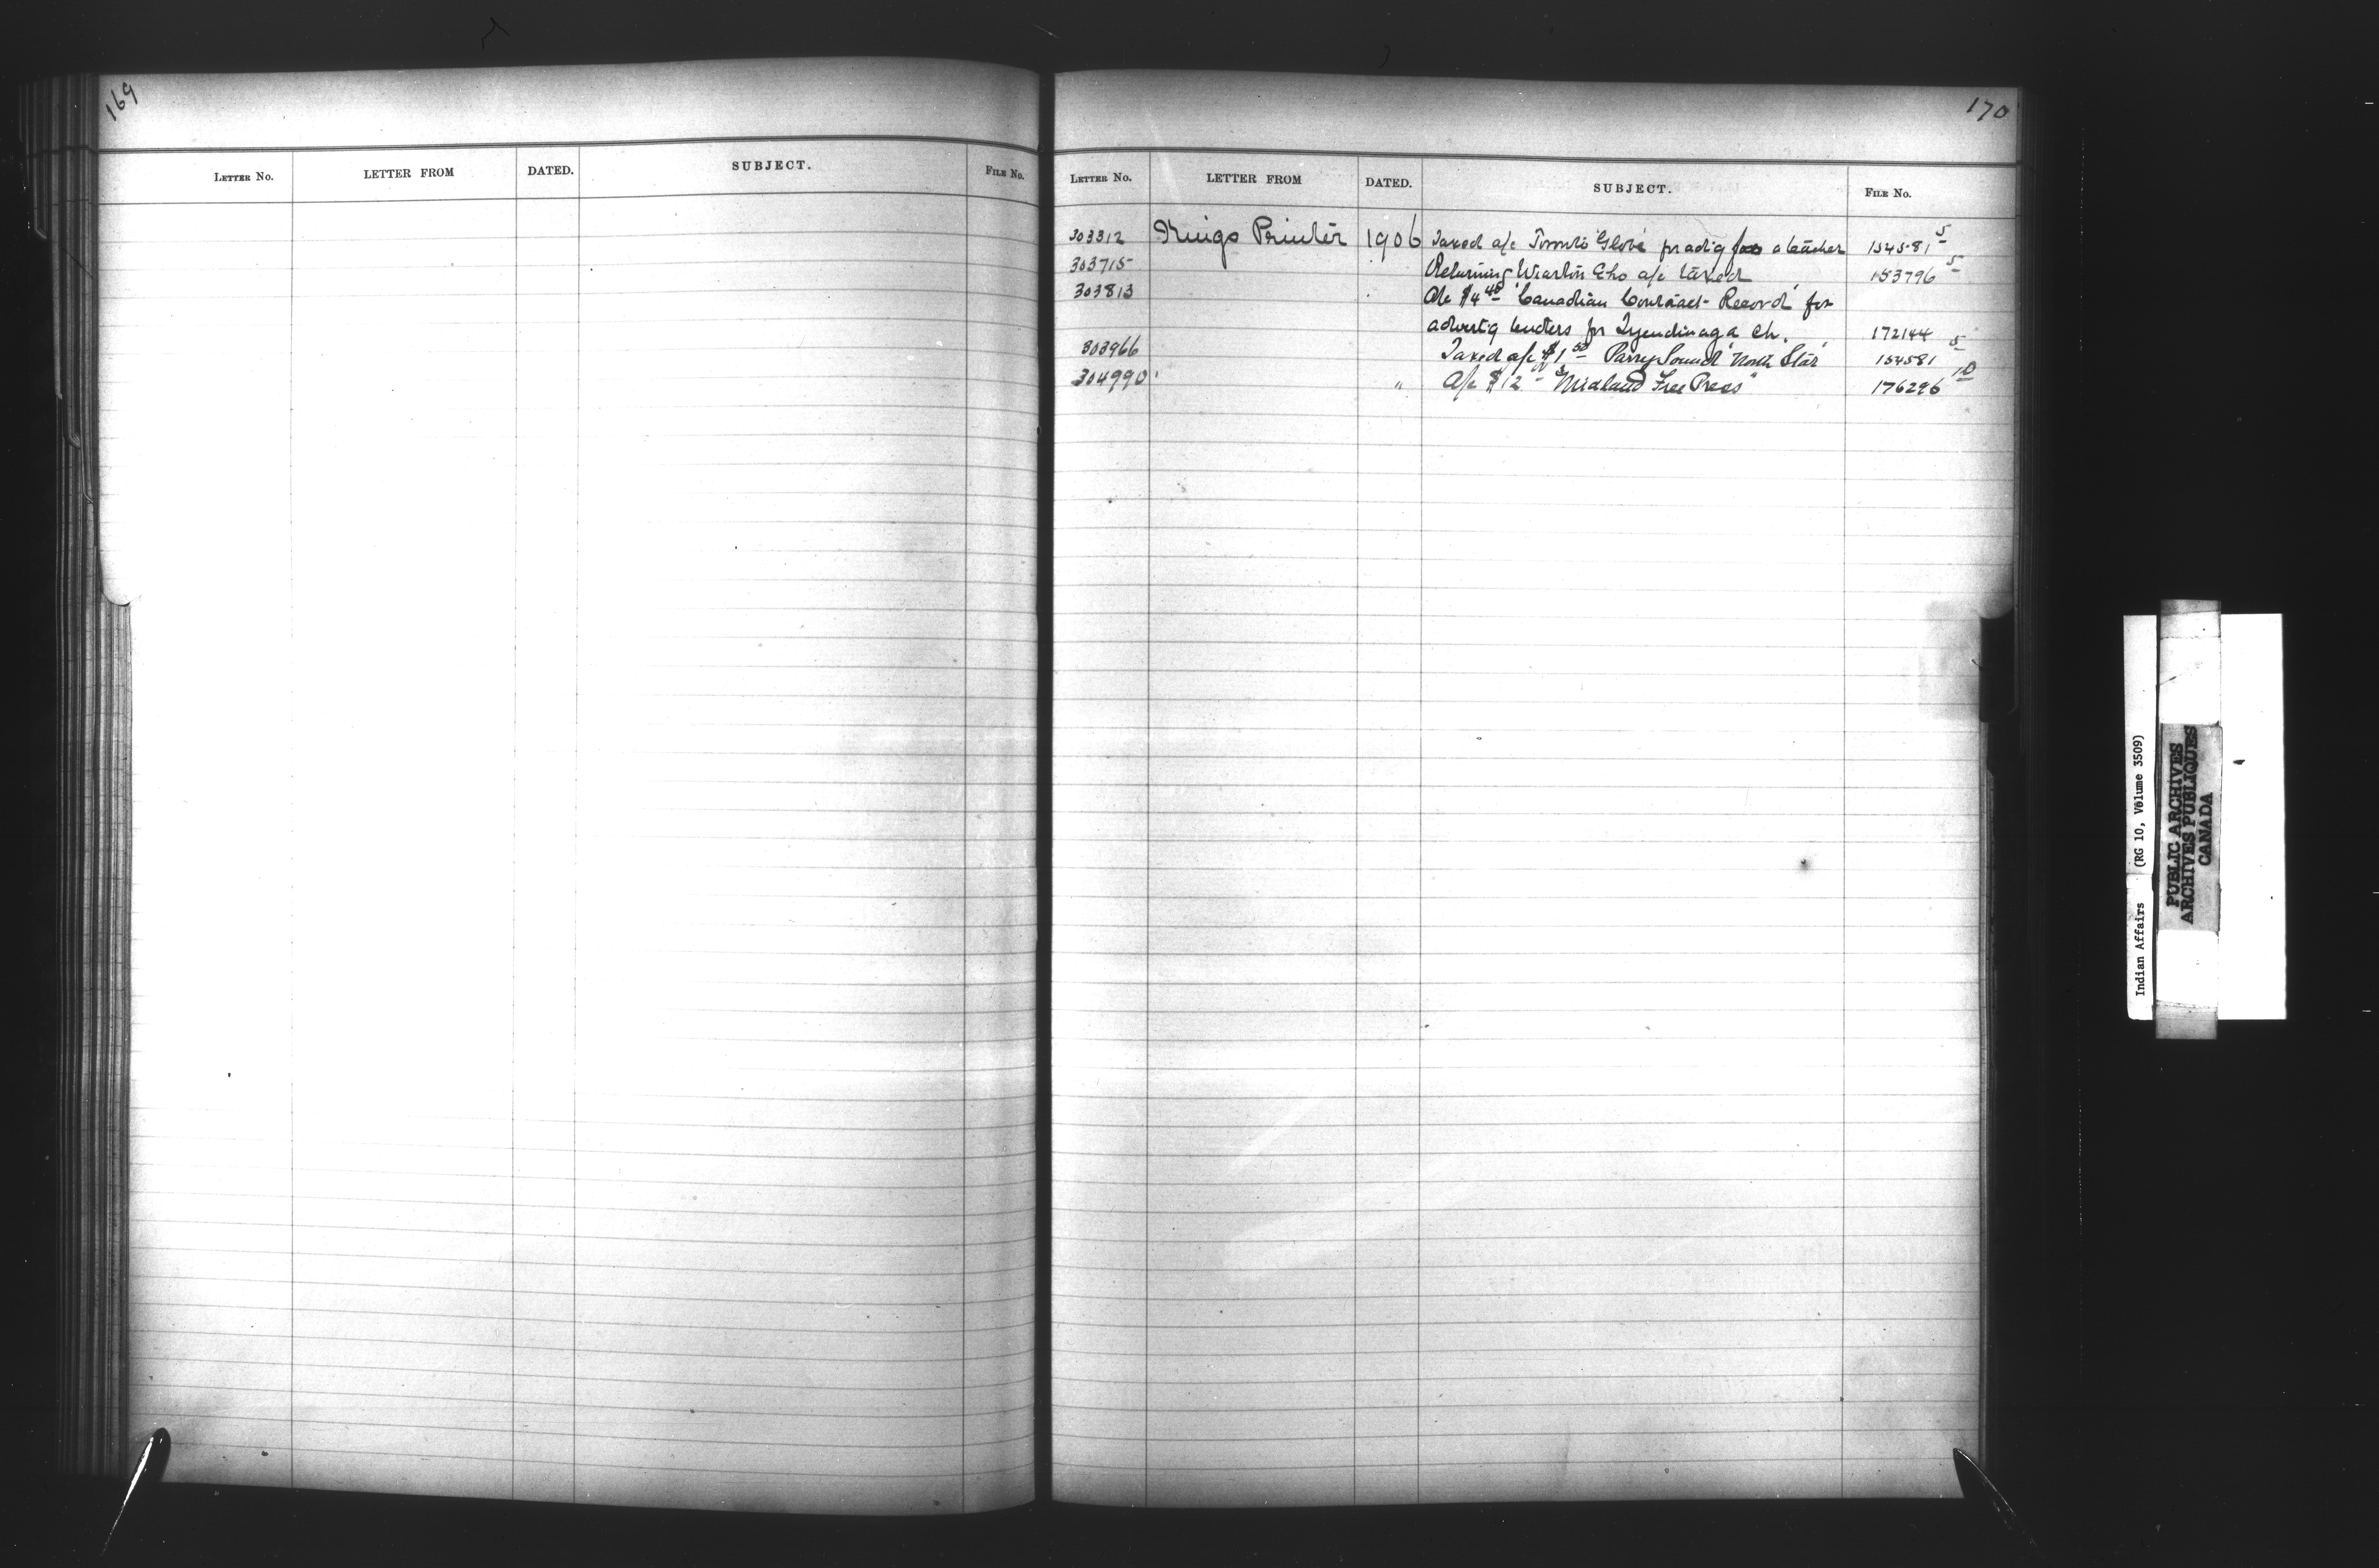 169
LETTER NO. LETTER FROM DATED. SUBJECT. FILE NO.
170
LETTER NO. LETTER FROM DATED. SUBJECT. FILE NO.
303312 Kings Printer 1906 Taxed a/c Toronto 'Globe' for advtg for a teacher 154581 5
303715 Returning Wiarton Echo a/c taxed 153796 5
303813 A/c $4 40 'Canadian Contract Record' for
advertig tenders for Tyendinaga Ch. 172144
303966 Taxed a/c $1 50 Parry Sound 'North Star' 154581 5
304990 " A/c $12 00 "Midland Free Press" 176296 10
Indian Affairs (RG 10, Volume 3509)
PUBLIC ARCHIVES
ARCHIVES PUBLIQUES
CANADA